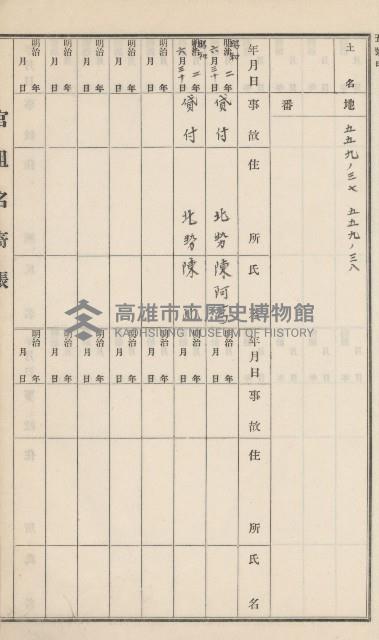 土名
地番
五五九ノ三七
五五九ノ三八
年月日
事故
住所
氏名
昭和 二年 六月三十日
貸付
北勢
陳阿
昭和 二年 六月三十日
貸付
北勢
陳
明治 年 月 日
明治 年 月 日
明治 年 月 日
明治 年 月 日
年月日
事故
住所
氏名
明治 年 月 日
明治 年 月 日
明治 年 月 日
明治 年 月 日
明治 年 月 日
明治 年 月 日
官租名寄帳
高雄市立歷史博物館
KAOHSIUNG MUSEUM OF HISTORY